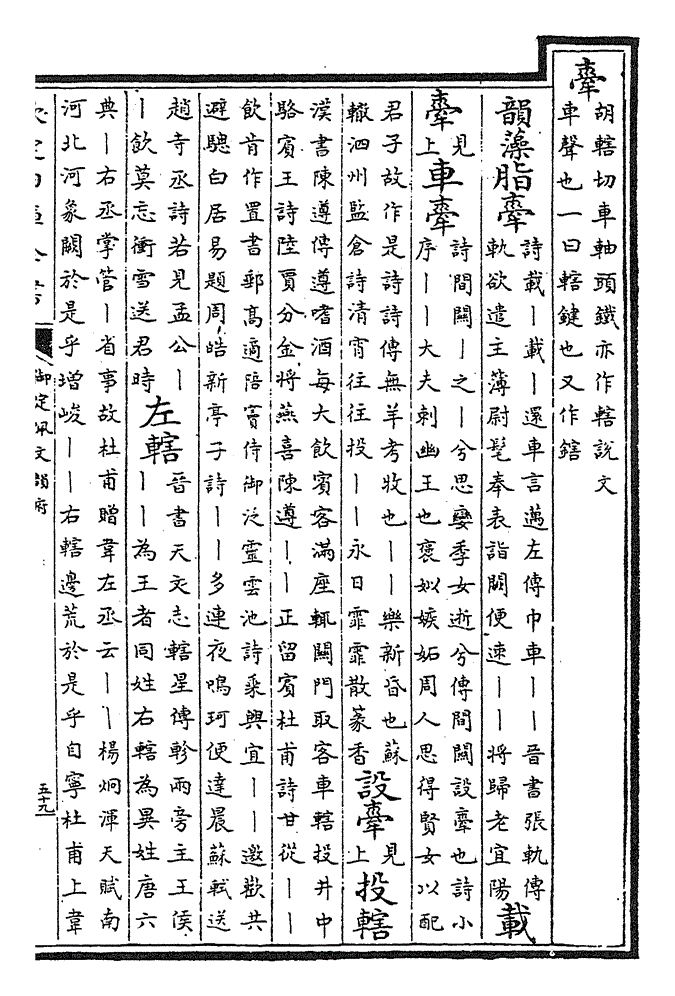 舝
胡轄切車軸頭鐵亦作轄說文
車聲也一曰轄鍵也又作鎋
韻藻脂舝
詩載丨載丨還車言邁左傳巾車丨丨晉書張軌傳
軌欲遣主簿尉髦奉表詣闕便速丨丨將歸老宜陽
載
舝
見
上
車舝
詩間關丨之丨兮思孌季女逝兮傳間關設舝也詩小
序丨丨大夫刺幽王也褒姒嫉妬周人思得賢女以配
君子故作是詩詩傳無羊考牧也丨丨樂新昏也蘇
轍泗州監倉詩清宵往往投丨丨永日霏霏散篆香
設舝
見
上
投轄
漢書陳遵傳遵嗜酒每大飲賓客滿座輒關門取客車轄投井中
駱賓王詩陸賈分金將燕喜陳遵丨丨正留賓杜甫詩甘從丨丨
飲肯作置書郵高適陪竇侍御泛靈雲池詩乘興宜丨丨邀歡共
避驄白居易題周皓新亭子詩丨丨多連夜鳴珂便達晨蘇軾送
趙寺丞詩若見孟公丨
丨飲莫忘衝雪送君時
左轄
晉書天文志轄星傅軫兩旁主王侯
丨丨為王者同姓右轄為異姓唐六
典丨右丞掌管丨省事故杜甫贈韋左丞云丨丨楊炯渾天賦南
河北河象闕於是乎增峻丨丨右轄邊荒於是乎自寧杜甫上韋
御定佩文韻府
五十九